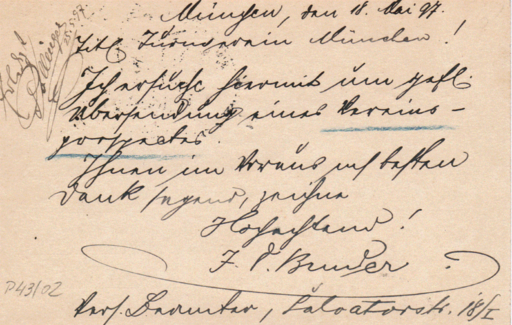 München, den 18. Mai 97.
Titl. Turnverein München!
Ich ersuche hiermit um gefl.
Übersendung eines Vereins-
prospectes.
Ihnen im Voraus mit besten
Dank sagend, zeichne
Hochachtend!
J. P.
Vers. Beamter, Salvatorstr. 18/I
P43/02